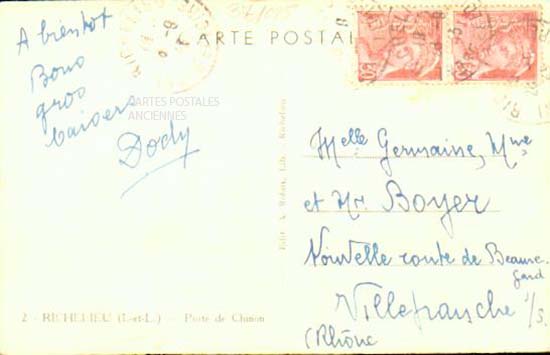 CARTE POSTALE
A bientôt
Bons
gros
baisers
Dody
CARTES POSTALES
ANCIENNES
Melle Germaine, Mme
et Mr. Boyer
Nouvelle route de Beaure-
gard
Villefranche s/S.
(Rhône
Edit. A. Robin, Lib., Richelieu
2 - RICHELIEU (I.-et-L.) - Porte de Chinon